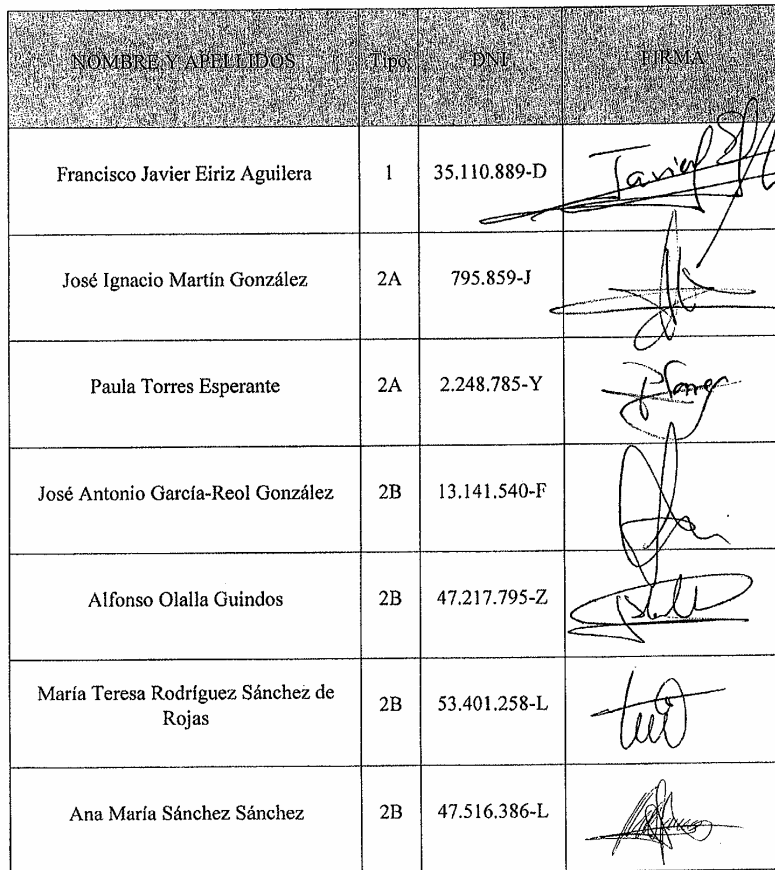 NOMBRE Y APELLIDOS Tipo DNI FIRMA
Francisco Javier Eiriz Aguilera 1 35.110.889-D Javier
José Ignacio Martín González 2A 795.859-J
Paula Torres Esperante 2A 2.248.785-Y
José Antonio García-Reol González 2B 13.141.540-F
Alfonso Olalla Guindos 2B 47.217.795-Z
María Teresa Rodríguez Sánchez de
Rojas 2B 53.401.258-L
Ana María Sánchez Sánchez 2B 47.516.386-L